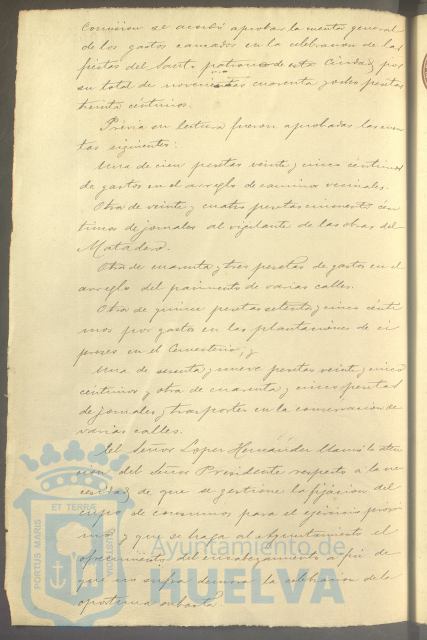 Comision se acordó aprobar la cuenta general
de los gastos causados en la celebracion de las
fiestas del Santo patrono de esta Ciudad, por
su total de novecientas cuarenta y ocho pesetas
treinta céntimos.
Prévia su lectura fueron aprobadas las cuen
tas siguientes:
Una de cien pesetas veinte y cinco céntimos
de gastos en el arreglo de caminos vecinales.
Otra de veinte y cuatro pesetas cincuenta cén
timos de jornales al vigilante de las obras del
Matadero.
Otra de cuarenta y tres pesetas de gastos en el
arreglo del pavimento de varias calles.
Otra de quince pesetas setenta y cinco cénti
mos por gastos en las plantaciones de ci
preses en el Cementerio, y
Una de sesenta y nueve pesetas veinte y cinco
céntimos y otra de cuarenta y cinco pesetas
de jornales y trasportes en la conservacion de
varias calles.
El Señor Lopez Hernandez llamó la aten
cion del Señor Presidente respecto a la ne
cesidad de que se gestione la fijacion del
cupo de consumos para el ejercicio próxi
mo, y que se haga al Ayuntamiento el
ofrecimiento del encabezamiento a fin de
que no sufra demora la celebracion de la
oportuna subasta.
ET TERRÆ
PORTUS MARIS
CUSTODIA
Ayuntamiento de
HUELVA